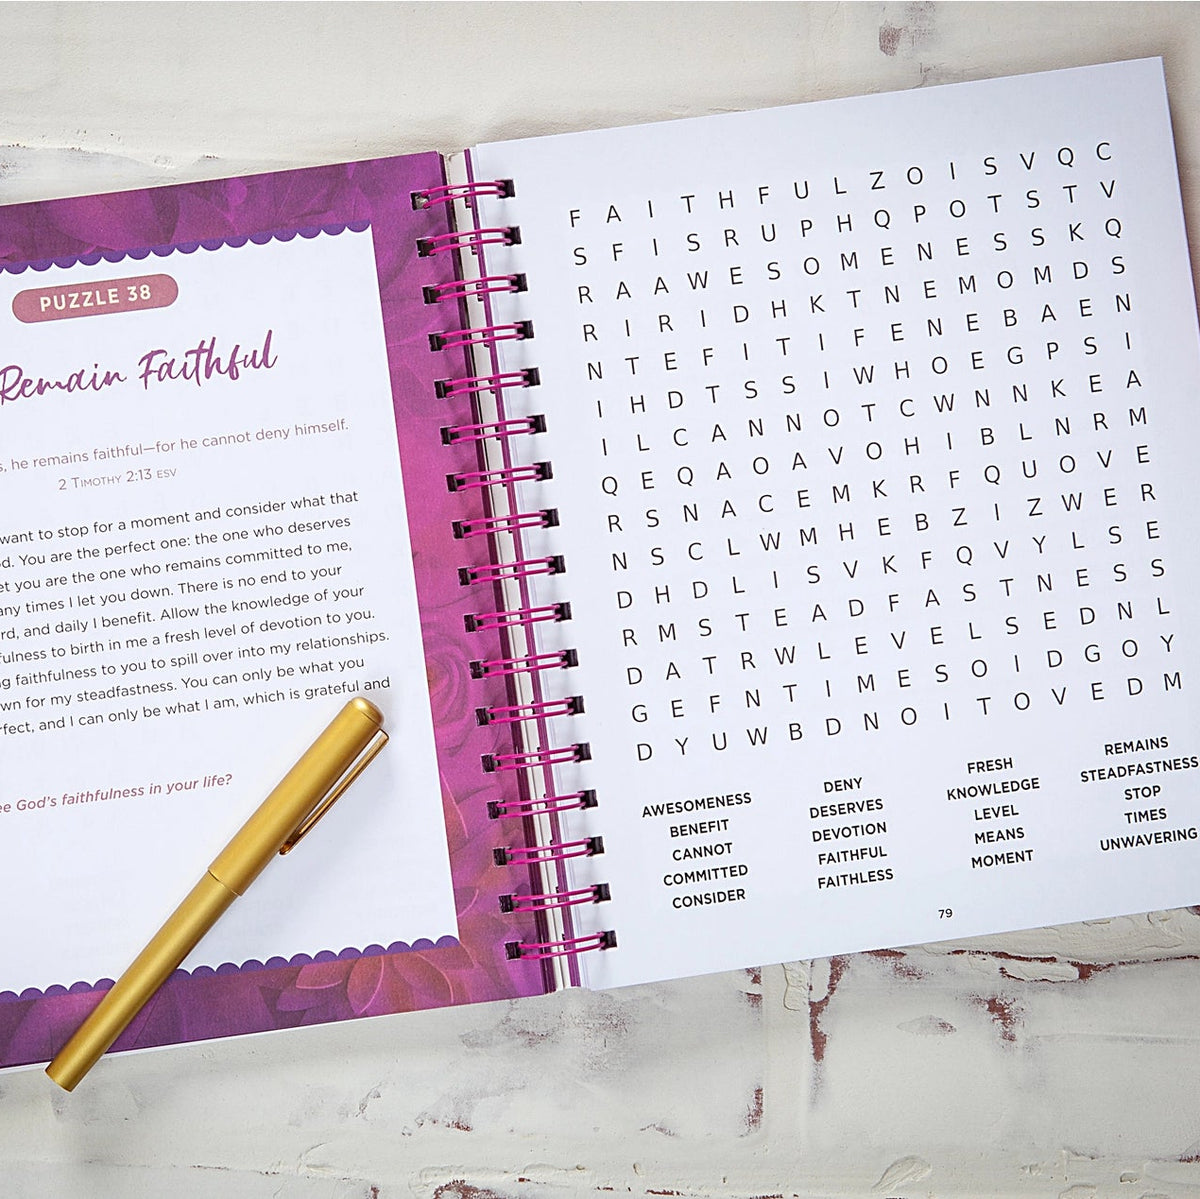 PUZZLE 38
Remain Faithful
s, he remains faithful—for he cannot deny himself.
2 Timothy 2:13 ESV
want to stop for a moment and consider what that
d. You are the perfect one: the one who deserves
et you are the one who remains committed to me,
any times I let you down. There is no end to your
rd, and daily I benefit. Allow the knowledge of your
fulness to birth in me a fresh level of devotion to you.
g faithfulness to you to spill over into my relationships.
wn for my steadfastness. You can only be what you
rfect, and I can only be what I am, which is grateful and
ee God's faithfulness in your life?
F A I T H F U L Z O I S V Q C
S F I S R U P H Q P O T S T V
R A A W E S O M E N E S S K Q
R I R I D H K T N E M O M D S
N T E F I T I F E N E B A E N
I H D T S S I W H O E G P S I
I L C A N N O T C W N N K E A
Q E Q A O A V O H I B L N R M
R S N A C E M K R F Q U O V E
N S C L W M H E B Z I Z W E R
D H D L I S V K F Q V Y L S E
R M S T E A D F A S T N E S S
D A T R W L E V E L S E D N L
G E F N T I M E S O I D G O Y
D Y U W B D N O I T O V E D M
AWESOMENESS
BENEFIT
CANNOT
COMMITTED
CONSIDER
DENY
DESERVES
DEVOTION
FAITHFUL
FAITHLESS
FRESH
KNOWLEDGE
LEVEL
MEANS
MOMENT
REMAINS
STEADFASTNESS
STOP
TIMES
UNWAVERING
79